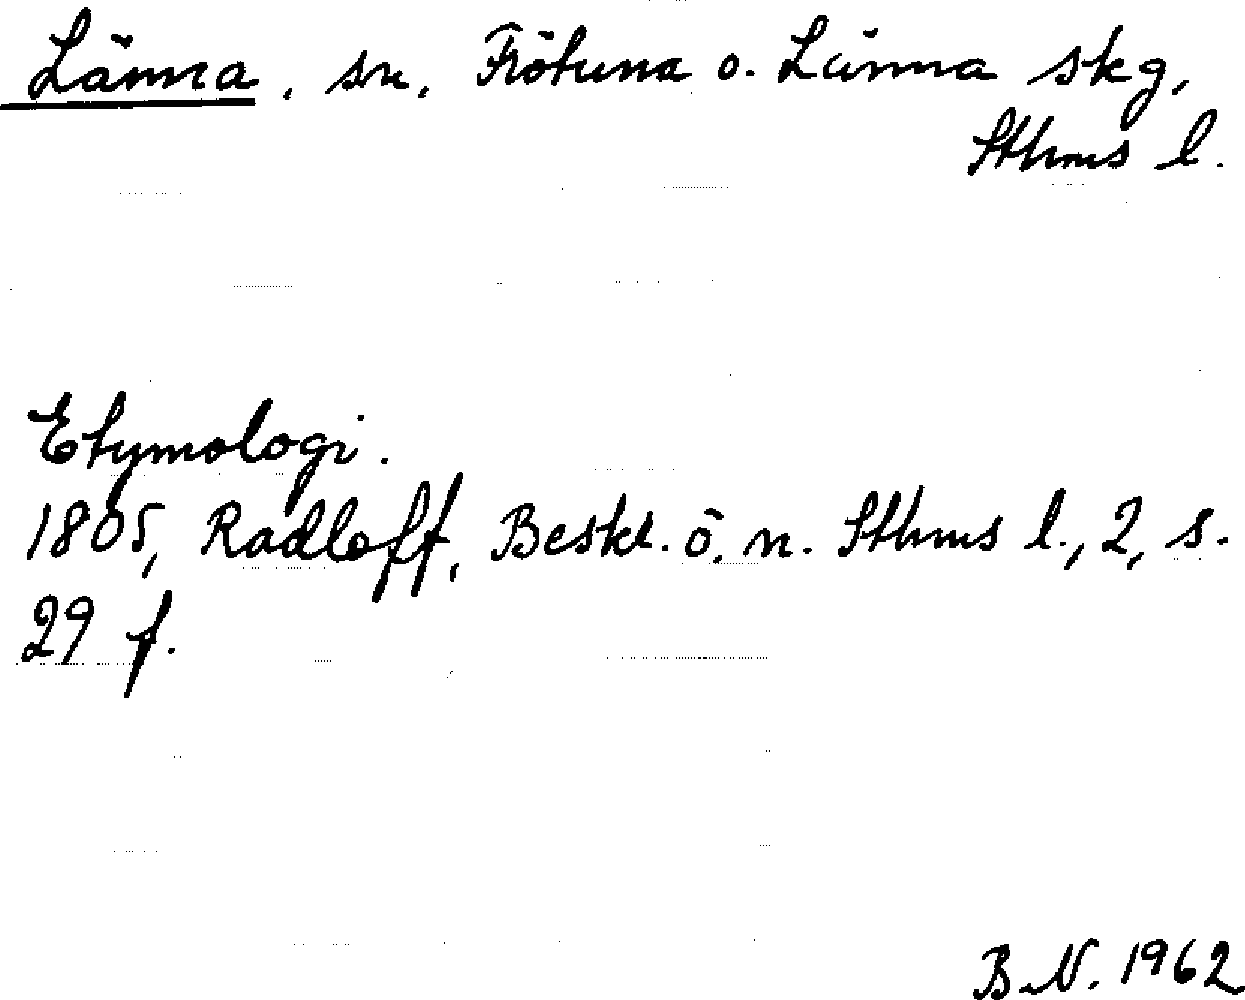 Länna, sn, Frötuna o. Länna skg,
Sthms l.
Etymologi.
1805, Radloff, Beskr. ö. n. Sthms l., 2, s.
29 f.
B.N. 1962